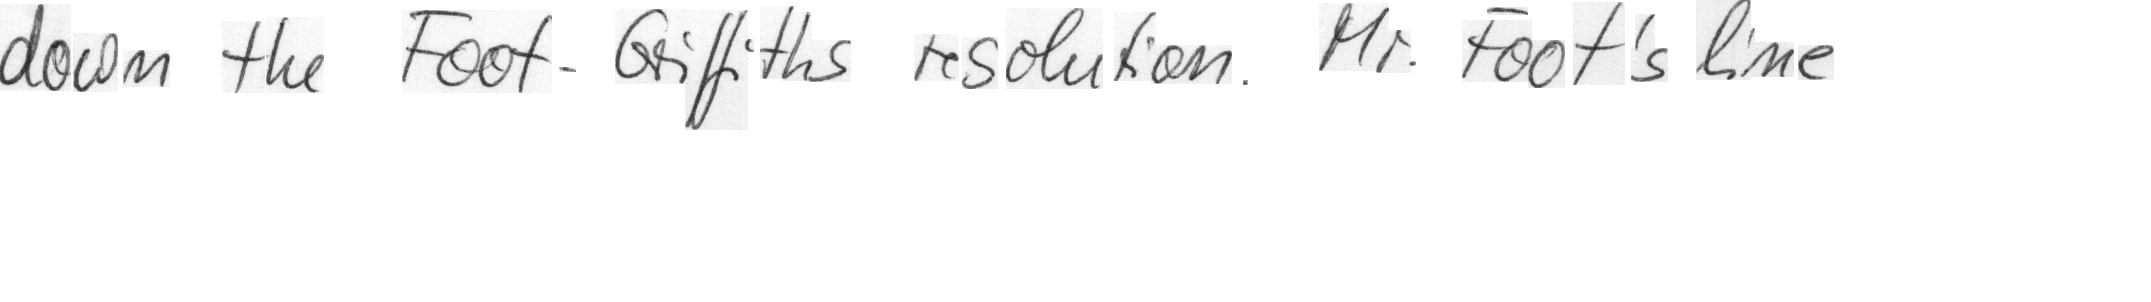 down the Foot-Griffiths resolution. Mr. Foot's line